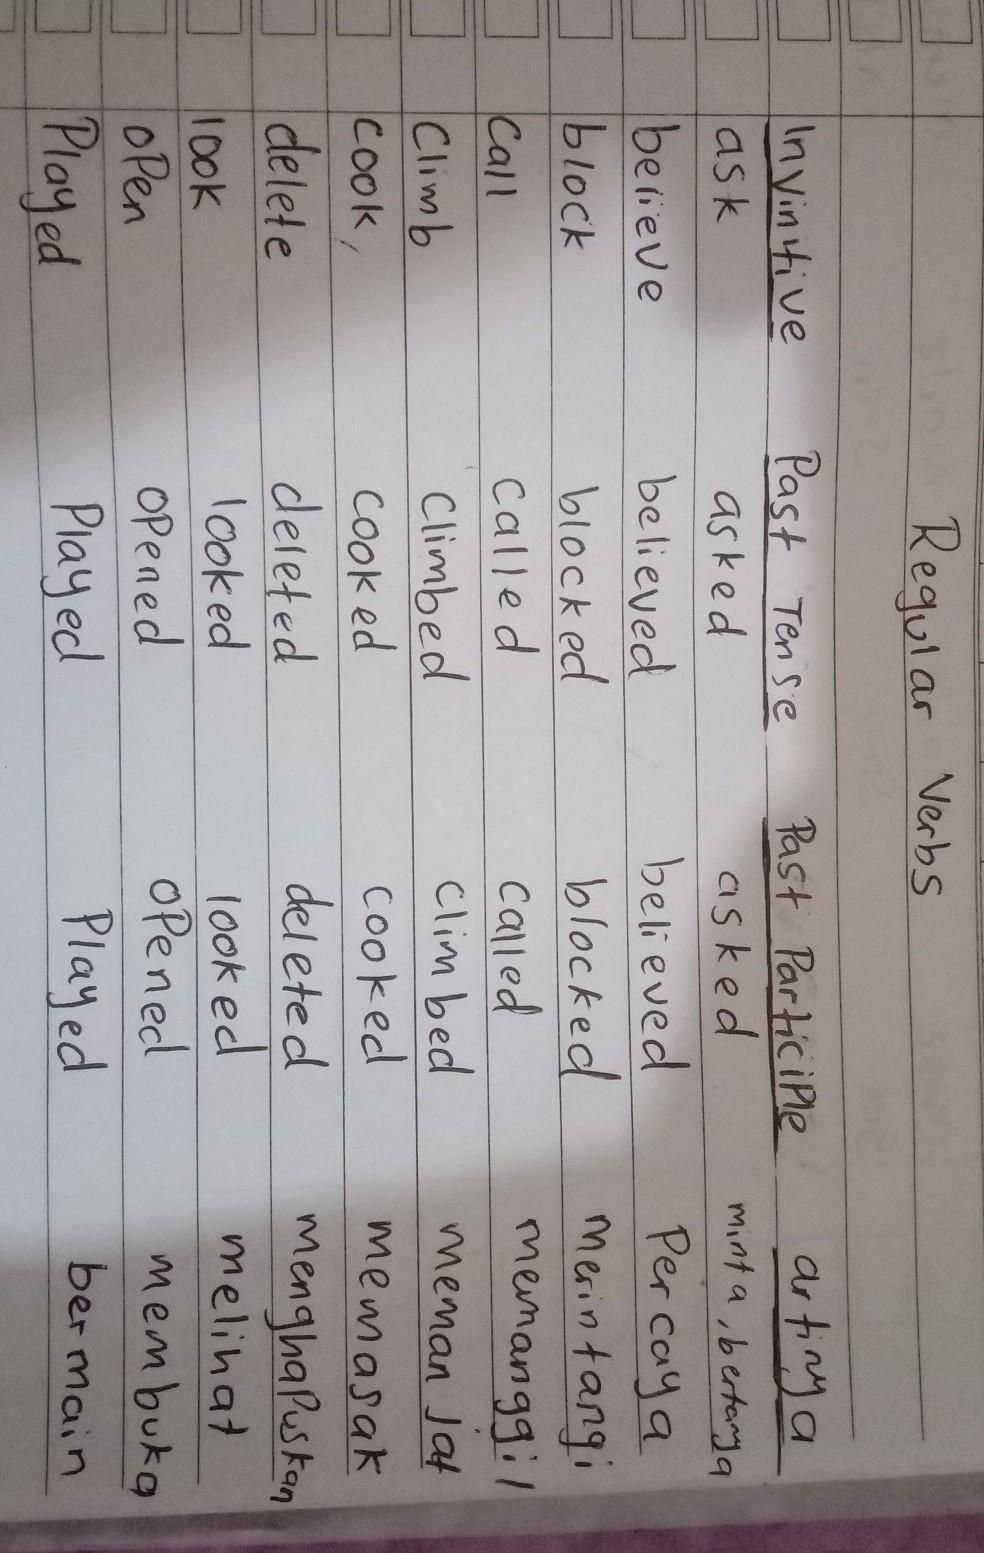 Regular Verbs
Invinitive Past Tense Past Participle artinya
ask asked asked minta, bertanya
beiieve believed believed Percaya
block blocked blocked merintangi
call called called memanggil
Climb Climbed climbed memanjat
cook, cooked cooked memasak
delete deleted deleted menghapuskan
look looked looked melihat
open opened opened membuka
Played Played Played bermain